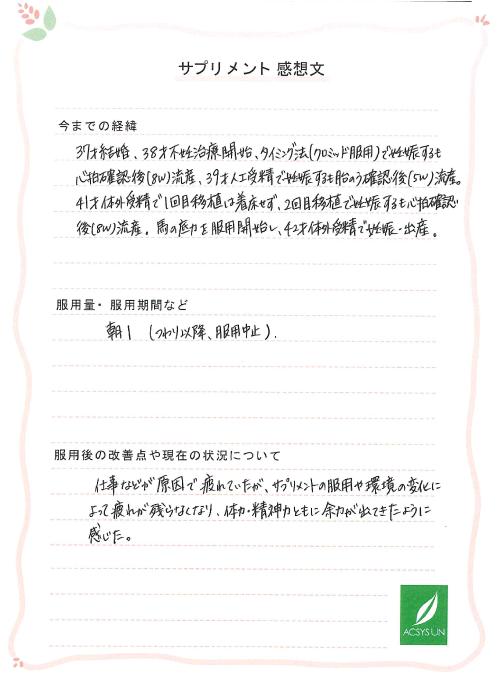 サプリメント 感想文
今までの経緯
37才結婚、38才不妊治療開始、タイミング法(クロミッド服用)で妊娠するも
心拍確認後(8W)流産、39才人工受精で妊娠するも胎のう確認後(5W)流産。
41才体外受精で1回目移植は着床せず、2回目移植で妊娠するも心拍確認
後(8W)流産。馬の底力を服用開始し、42才体外受精で妊娠・出産。
服用量・服用期間など
朝1 (つわり以降、服用中止).
服用後の改善点や現在の状況について
仕事などが原因で疲れていたが、サプリメントの服用や環境の変化に
よって疲れが残らなくなり、体力・精神力ともに余力が出てきたように
感じた。
ACSYSUN